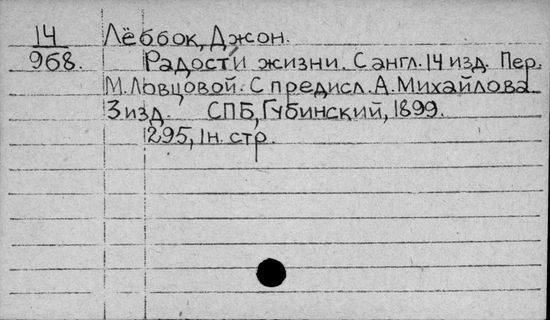 14 Лёббок, Джон.
968. Радости жизни. С англ. 14 изд. Пер.
М. Ловцовой. С предисл. А. Михайлова.
3 изд. СПБ, Губинский, 1899.
295, 1н. стр.